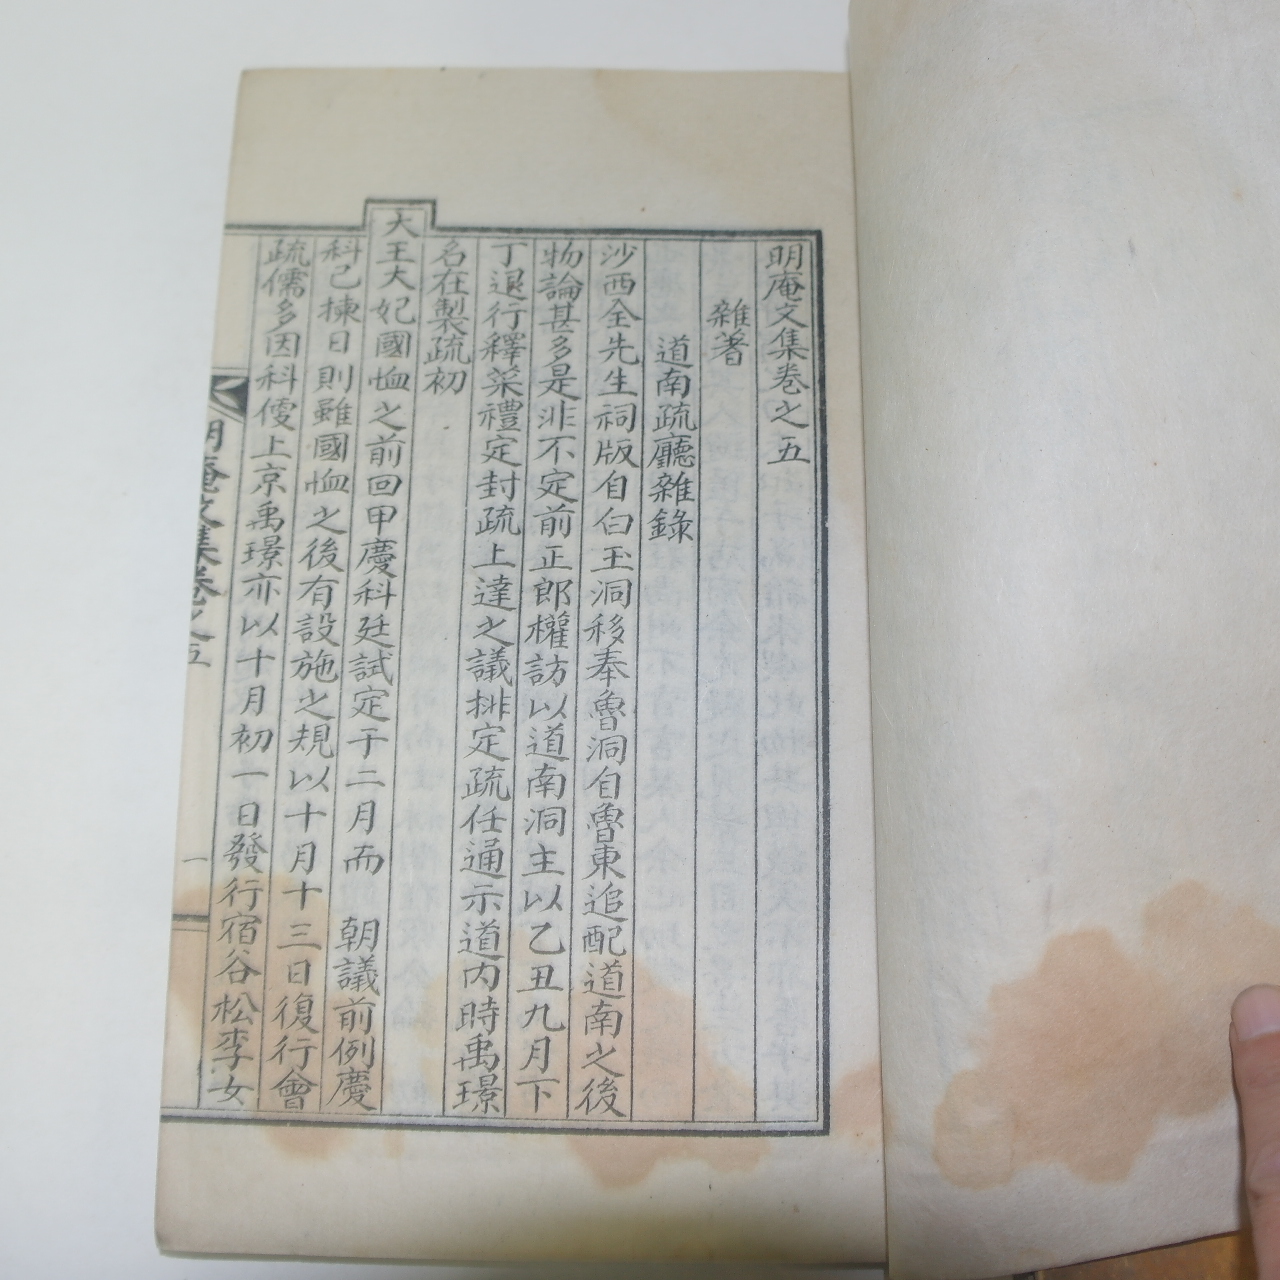 明庵文集卷之五
雜著
道南疏廳雜錄
沙西全先生祠版自白玉洞移奉魯洞自魯東追配道南之後
物論甚多是非不定前正郎權訪以道南洞主以乙丑九月下
丁退行釋菜禮定封疏上達之議排定疏任通示道內時禹璟
名在製疏初
大王大妃國恤之前回甲慶科廷試定于二月而 朝議前例慶
科已揀日則雖國恤之後有設施之規以十月十三日復行會
疏儒多因科儓上京禹璟亦以十月初一日發行宿谷松李女
明庵文集卷之五
一